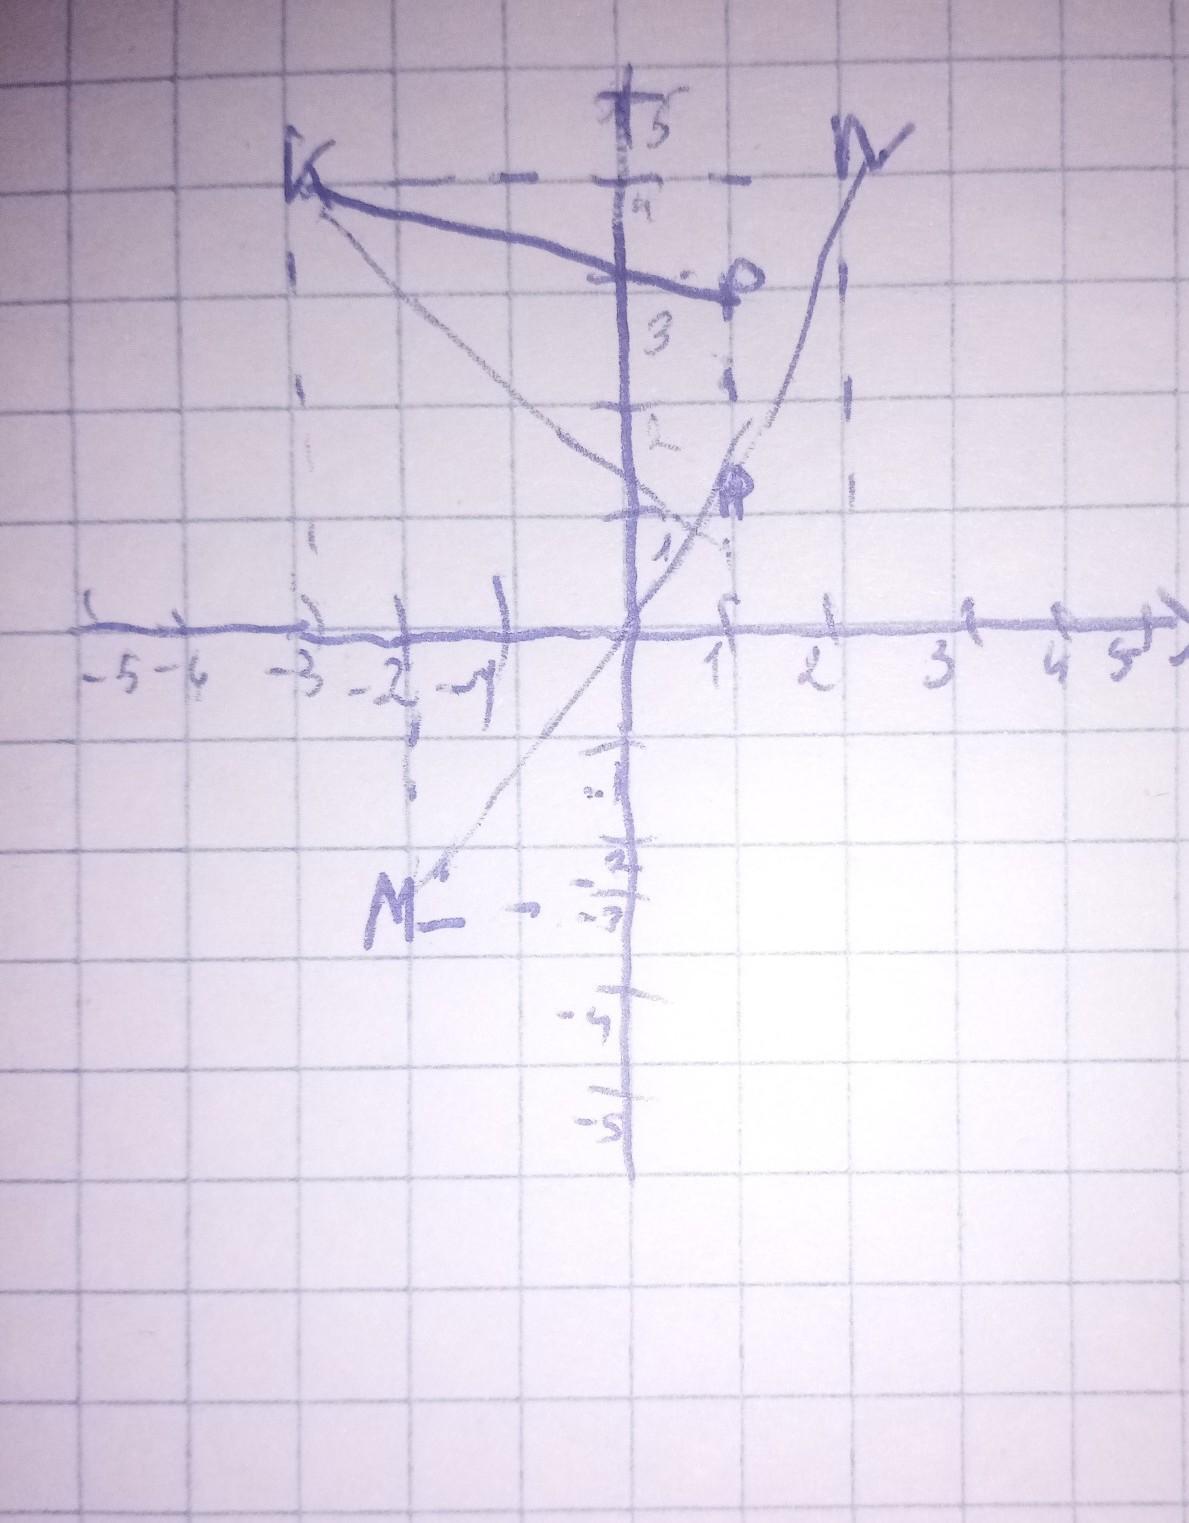 5
K N
4
P
3
2
R
1
-5 -4 -3 -2 -1 1 2 3 4 5
-1
-2
M -3
-4
-5